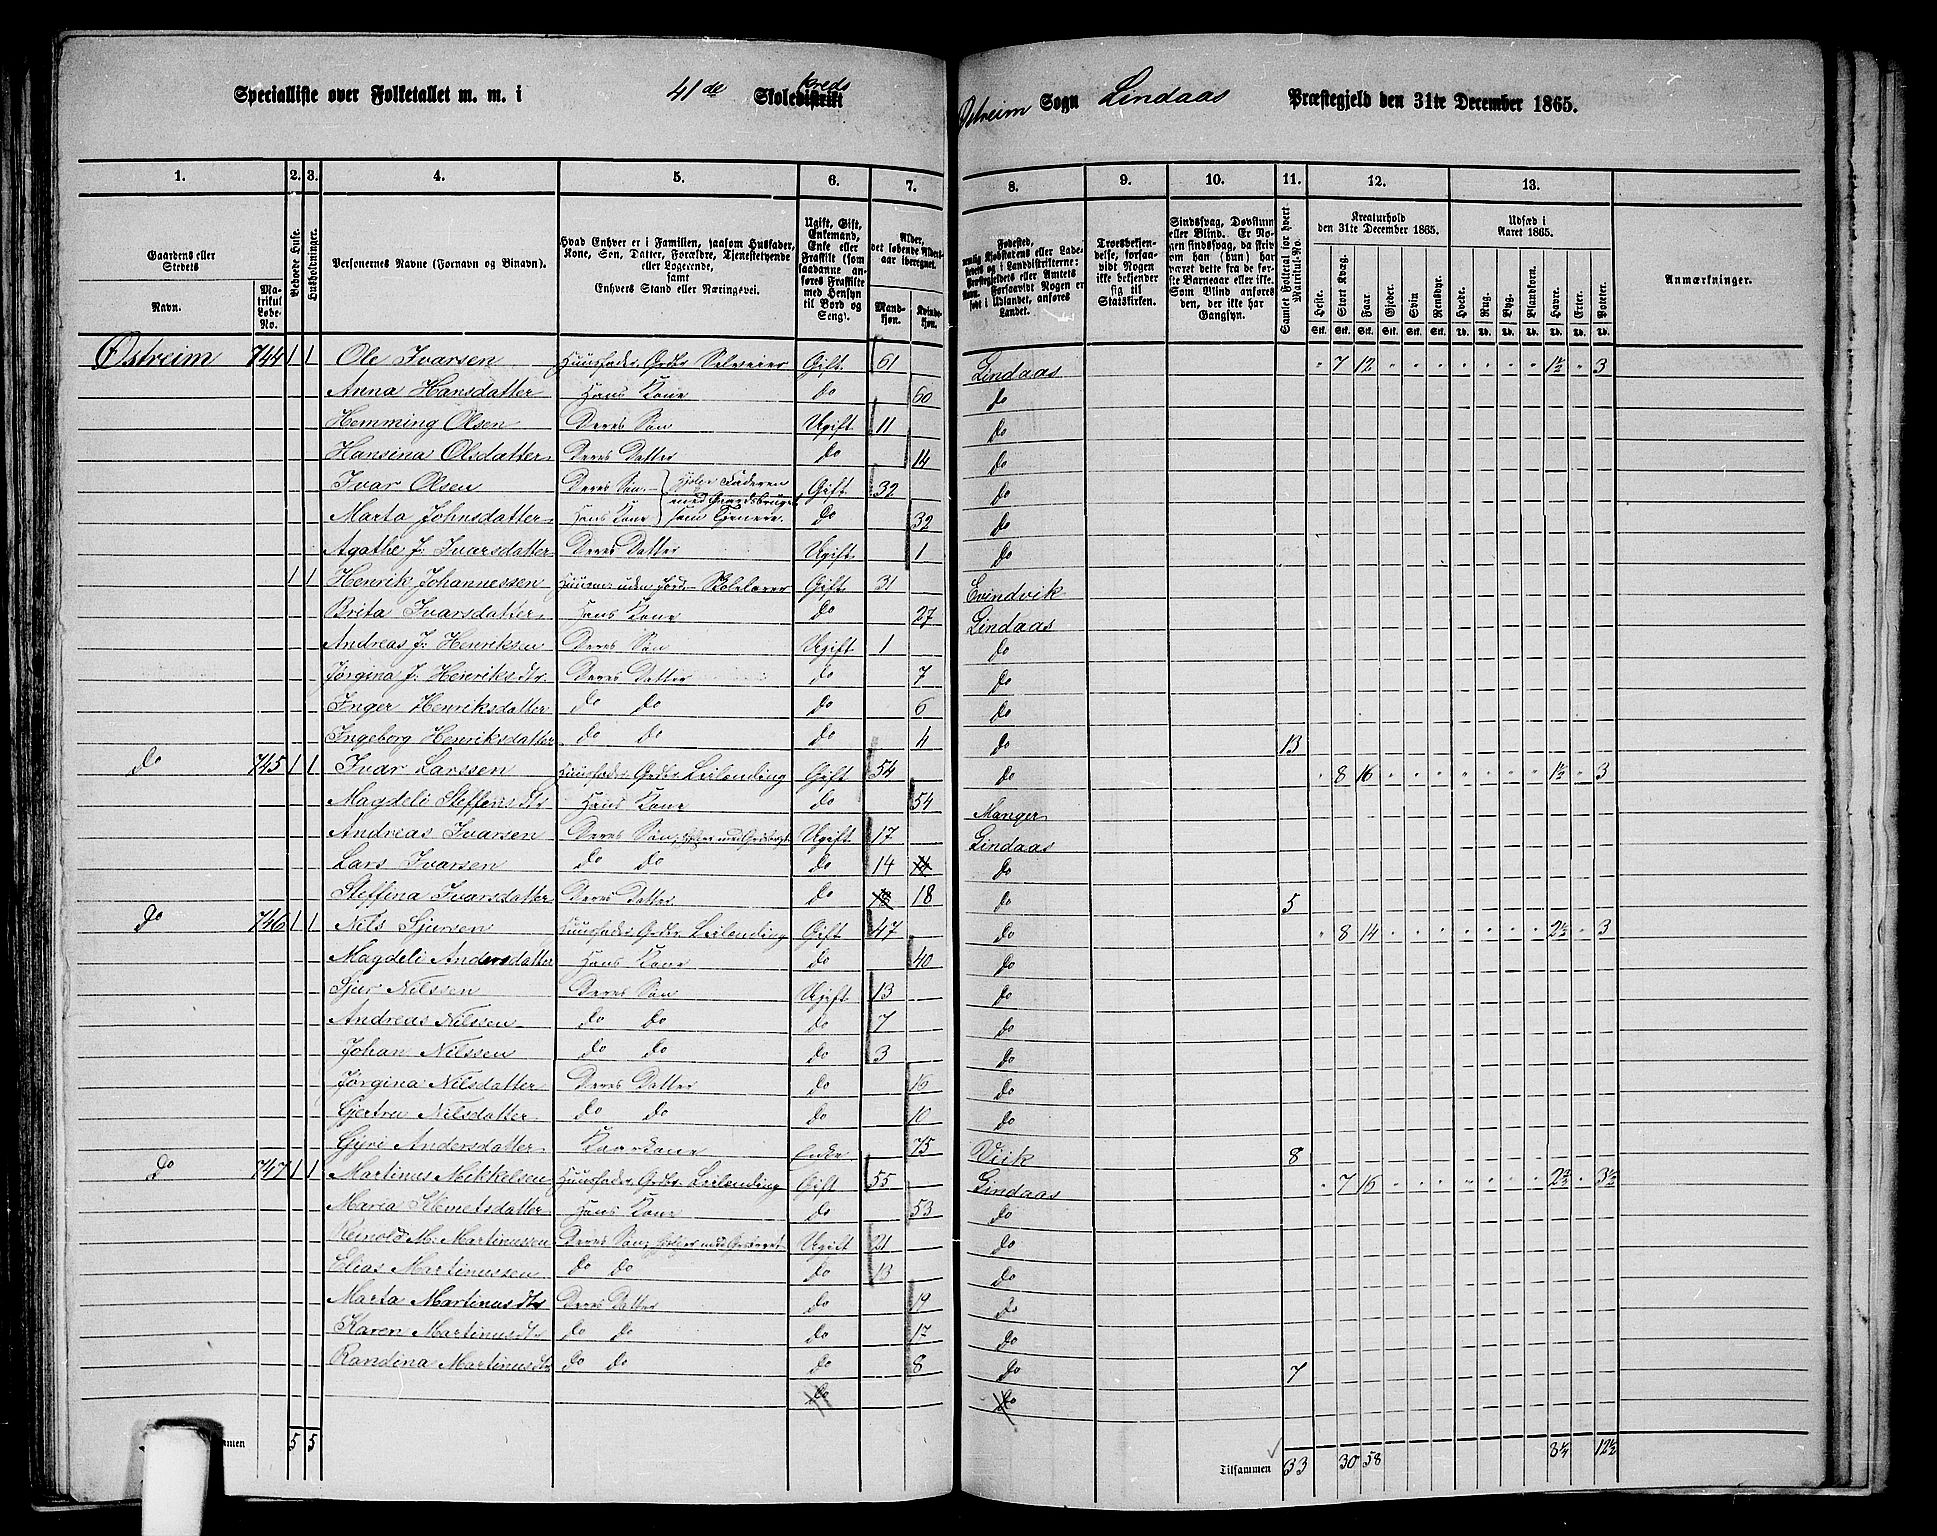 Specialliste over Folketallet m. m. i 41de Skoledistrikt kreds Østreim Sogn Lindaas Præstegjeld den 31te December 1865.
1. 2. 3. 4. 5. 6. 7. 8. 9. 10. 11. 12. 13.
Gaardens eller Stedets Navn. Matrikul Løbe-No. Beboede Huse. Husholdninger. Personernes Navne (Fornavn og Binavn). Hvad Enhver er i Familien, saasom Husfader, Kone, Søn, Datter, Forældre, Tjenestetyende eller Logerende, samt Enhvers Stand eller Næringsvei. Ugift, Gift, Enkemand, Enke eller Fraskilt (som saadanne anføres Fraskilte med Hensyn til Bord og Seng). Alder, det løbende Aldersaar iberegnet. Mandkjøn. Kvindekjøn.
Fødested, Troesbekjendelse, forsaavidt Nogen ikke bekjender sig til Statskirken. Sindssvag, Døvstum eller Blind. Samlet Folketal for hvert Matrikul-No. Kreaturhold den 31te December 1865. Heste. Stort Kvæg. Faar. Gjeder. Svin. Rensdyr. Udsæd i Aaret 1865. Hvede. Rug. Byg. Blandkorn. Havre. Erter. Poteter. Anmærkninger.
Østreim 744 1 1 Ole Ivarsen Huusfader Grdbr Selveier Gift 61 Lindaas " 7 12 " " " " " " " 1½ " 3
Anna Hansdatter Hans Kone do 60 do
Hemming Olsen Deres Søn Ugift 11 do
Hansina Olsdatter Deres Datter do 14 do
Ivar Olsen Deres Søn hjelper Faderen Gift 32 do
med Gaardsbruget
Marta Johnsdatter Hans Kone som Tjenere. do 32 do
Agathe J: Ivarsdatter Deres Datter Ugift 1 do
1 1 Henrik Johannessen Huusm: uden Jord Skolelærer Gift 31 Evindvik
Brita Ivarsdatter Hans Kone do 27 Lindaas
Andreas J: Henriksen Deres Søn Ugift 1 do
Jørgina J: Henriksdtr. Deres Datter do 7 do
Inger Henriksdatter do do do 6 do
Ingeborg Henriksdatter do do do 4 do 13
do 745 1 1 Ivar Larssen Huusfader Grdbr Leilending Gift 54 do " 8 16 " " " " " " " 1½ " 3
Magdeli Steffensdtr Hans Kone do 54 Manger
Andreas Ivarsen Deres Søn, Ugift 17 Lindaas
Lars Ivarsen do do do 14 do
Steffina Ivarsdatter Deres Datter do 18 do 5
do 746 1 1 Nils Sjursen Huusfader Grdbr Leilending Gift 47 do " 8 14 " " " " " " " 2½ " 3
Magdeli Andersdatter Hans Kone do 40 do
Sjur Nilssen Deres Søn Ugift 13 do
Andreas Nilssen do do do 7 do
Johan Nilssen do do do 3 do
Jørgina Nilsdatter Deres Datter do 16 do
Gjertru Nilsdatter do do do 10 do
Gyri Andersdatter Kaarkone Enke 75 Viik 8
do 747 1 1 Martinus Mikkelsen Huusfader Grdbr Leilending Gift 55 Lindaas " 7 16 " " " " " " " " 3½
Maria Klemetsdatter Hans Kone do 53 do
Reinold M: Martinussen Deres Søn, Ugift 21 do
Elias Martinussen do do do 13 do
Marta Martinusdtr Deres Datter do 19 do
Karen Martinusdtr do do do 17 do
Randina Martinusdtr do do do 8 do 7
do do
5 5 Tilsammen 33 30 58 12½